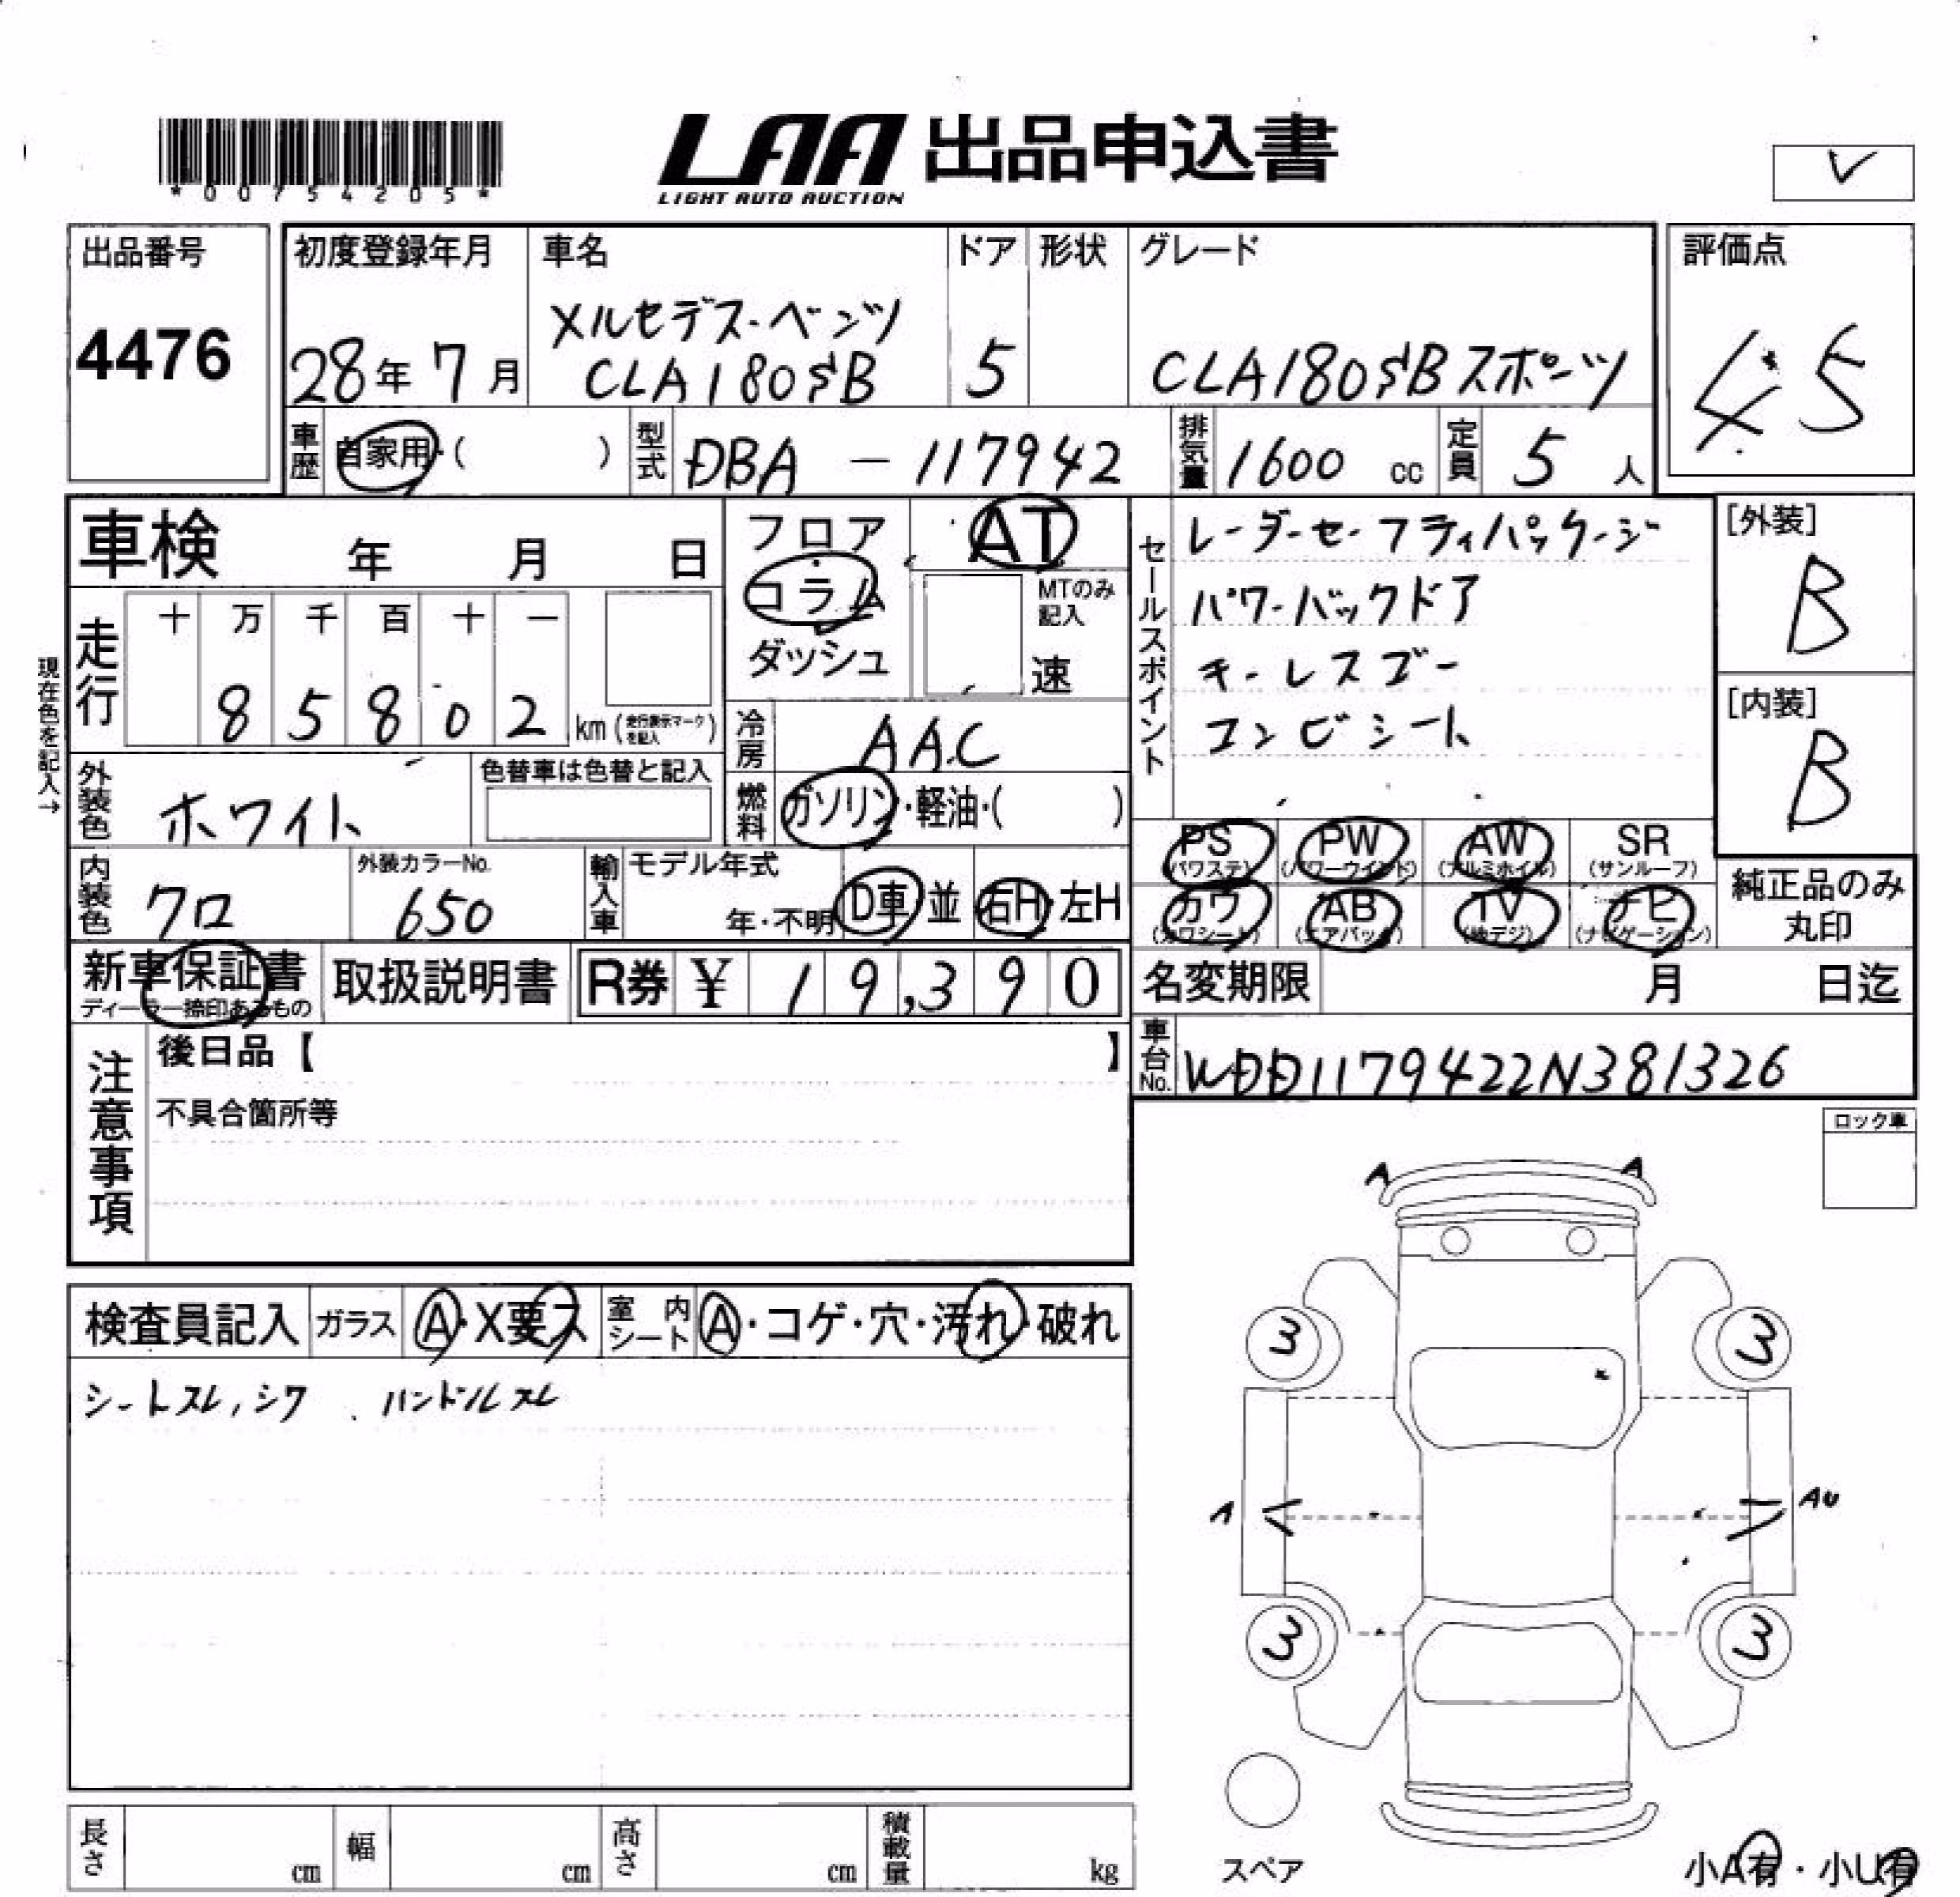 *00754205*
LAA 出品申込書
LIGHT AUTO AUCTION
出品番号
4476
初度登録年月
28年 7月
車名
メルセデス・ベンツ
CLA180SB
ドア
5
形状
グレード
CLA180SBスポーツ
評価点
4.5
車歴 自家用・( )
型式 DBA - 117942
排気量 1600 cc
定員 5 人
車検 年 月 日
走行
十 万 千 百 十 一
8 5 8 0 2 km (走行表示マークを記入)
現在色を記入→
外装色 ホワイト
色替車は色替と記入
内装色 クロ
外装カラーNo.
650
フロア
コラム
ダッシュ
AT
MTのみ記入
速
冷房 AAC
燃料 ガソリン・軽油・( )
輸入車
モデル年式
年・不明
D車 並
右H・左H
セールスポイント
レーダーセーフティパッケージ
パワーバックドア
キーレスゴー
コンビシート
[外装]
B
[内装]
B
PS (パワステ)
PW (パワーウインド)
AW (アルミホイル)
SR (サンルーフ)
カワ (カワシート)
AB (エアバック)
TV (地デジ)
ナビ (ナビゲーション)
純正品のみ
丸印
新車保証書
ディーラー捺印あるもの
取扱説明書
R券 ¥ 19,390
名変期限 月 日迄
車台No. WDD1179422N381326
注意事項
後日品【 】
不具合箇所等
ロック車
検査員記入
ガラス A・X要ス
室内シート A・コゲ・穴・汚れ・破れ
シートスレ,シワ、ハンドルスレ
A A
3 3
A AU
3 3
スペア
小A有・小U有
長さ cm
幅 cm
高さ cm
積載量 kg